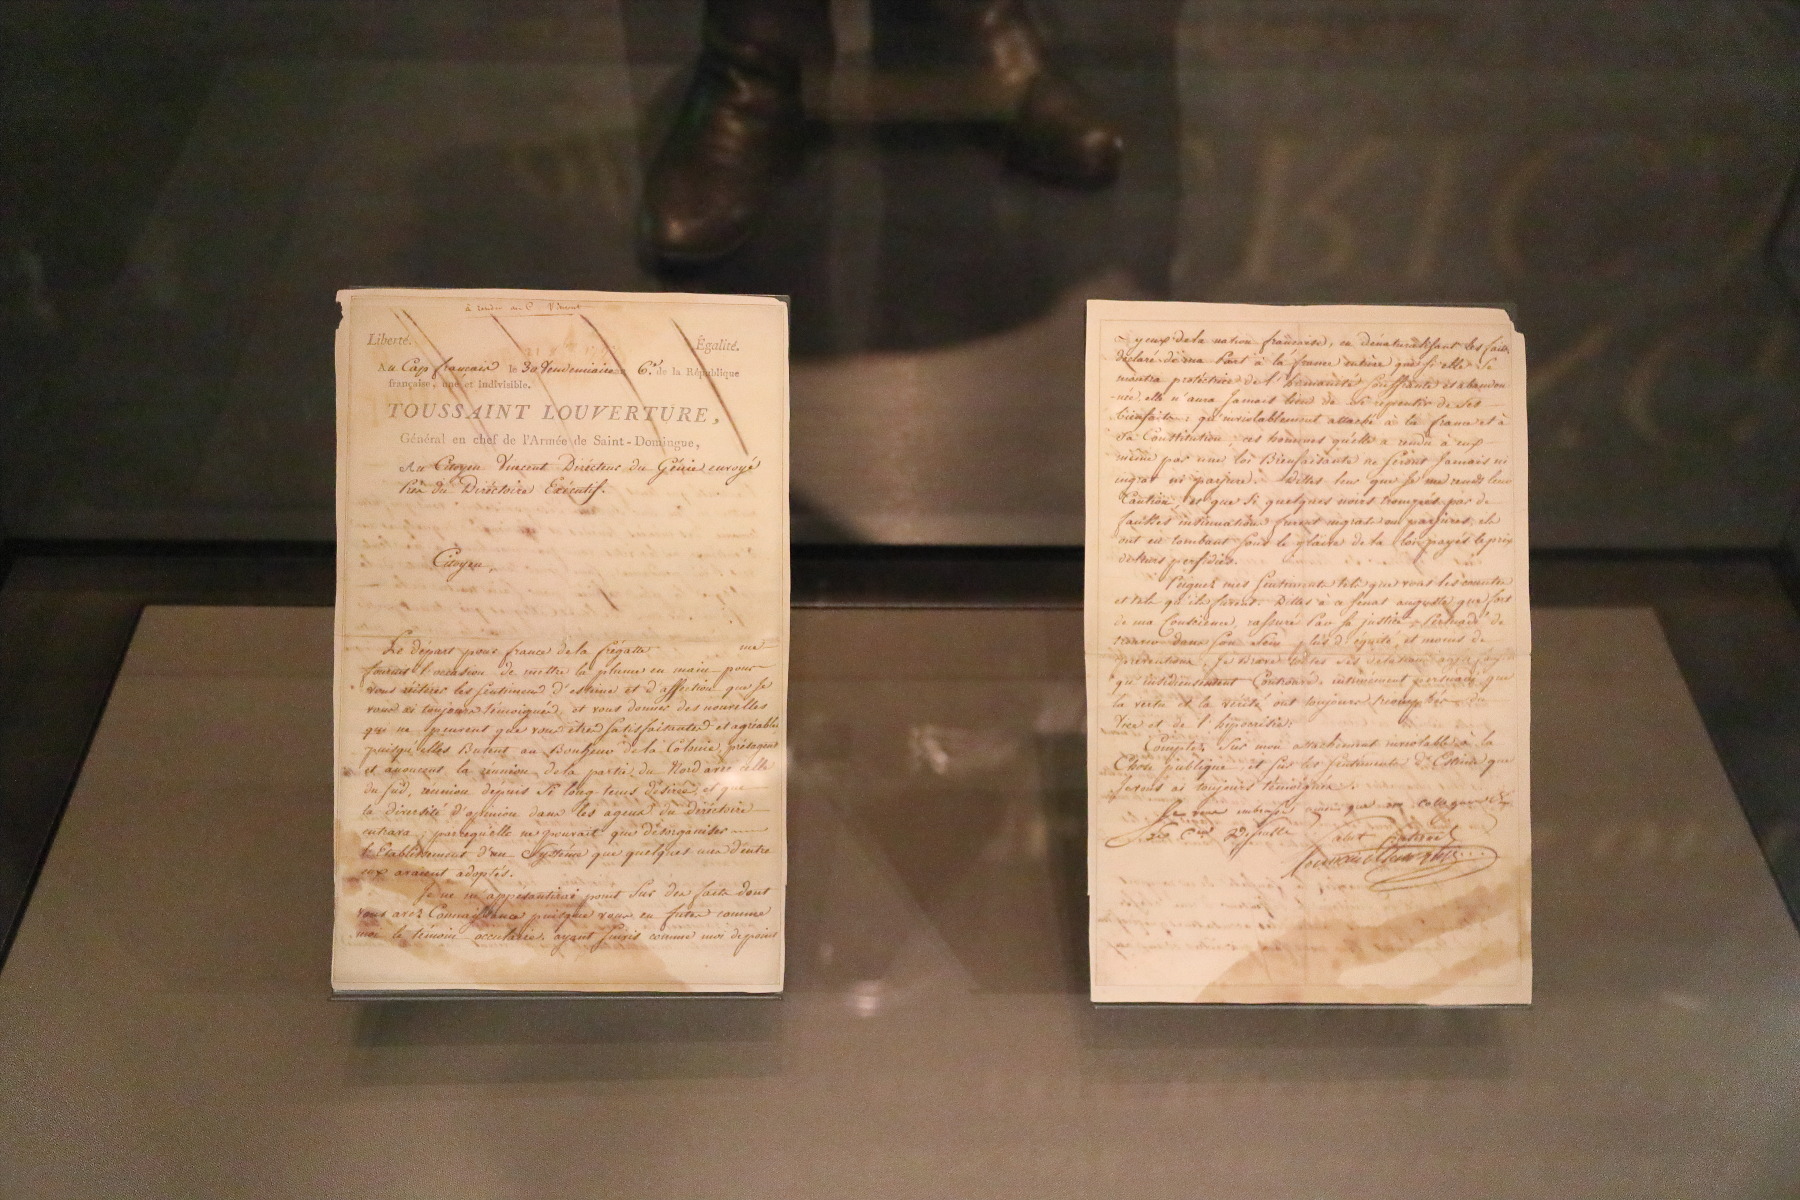 à rendre au C. Vincent
Liberté. Égalité.
Au Cap français le 30 Vendemiaire an 6e. de la République
française, une et indivisible.
TOUSSAINT LOUVERTURE,
Général en chef de l'Armée de Saint-Domingue,
Au Citoyen Vincent Directeur du Génie envoyé
Près du Directoire Exécutif.
Citoyen,
Le départ pour france de la frégatte me
fournit l'occasion de mettre la plume en main pour
vous réitérer les sentimens d'estime et d'affection que je
vous ai toujours témoignés, et vous donner des nouvelles
qui ne peuvent que vous être satisfaisantes et agréables
puisqu'elles Butent au Bonheur de la Colonie,
et anoncent la réunion de la partie du Nord avec celle
du Sud, reunion depuis si long-tems désirée, et que
la diversité d'opinion dans les agens du directoire
entrava, parcequ'elle ne pouvait que désorganiser
l'Etablissement d'un Systême que quelques uns d'entre
eux avaient adoptés.
Je ne m'appesantirai point Sur des faits dont
vous avez Connaissance puisque vous en futes comme
moi le témoin occulaire, ayant suivis comme moi de point
yeux de la nation francaise, en dénaturalisant les faits
déclaré de ma Part à la france entiere que si elle Se
montra protéctrice de l'humanité souffrante et abandon
née, elle n'aura Jamais lieu de se repentir de Ses
bienfaits; qu'inviolablement attaché à la france et à
Sa Constitution, ces hommes qu'elle a rendu à eux
même par une loi Bienfaisante ne seront Jamais ni
ingrat ni parjure. Dittes leur que je me rends leur
Caution, et que Si quelques noirs trompés par de
fausses insinuations furent ingrats ou parjures, ils
ont en tombant sous le glaive de la loi payés le prix
de leurs perfidies.
Peignez mes sentimens tels que vous les connoitre
et tels qu'ils furent. Dittes à ce senat auguste que fort
de ma Conscience, rassuré Par sa justice, Persuadé de
trouver dans son Sein plus d'équité, et moins de
préventions, Je brave toutes les
qu'insidieusement Controuvé, intimément persuadé que
la vertu et la vérité ont toujours triomphés du
Vice et de l'hipocrisie.
Comptez Sur mon attachement inviolable à la
Chose publique et sur les sentimens d'Estime que
je vous ai toujours témoignés.
Je vous embrasse ainsi que vos collegues
Salut
Toussaint Louverture